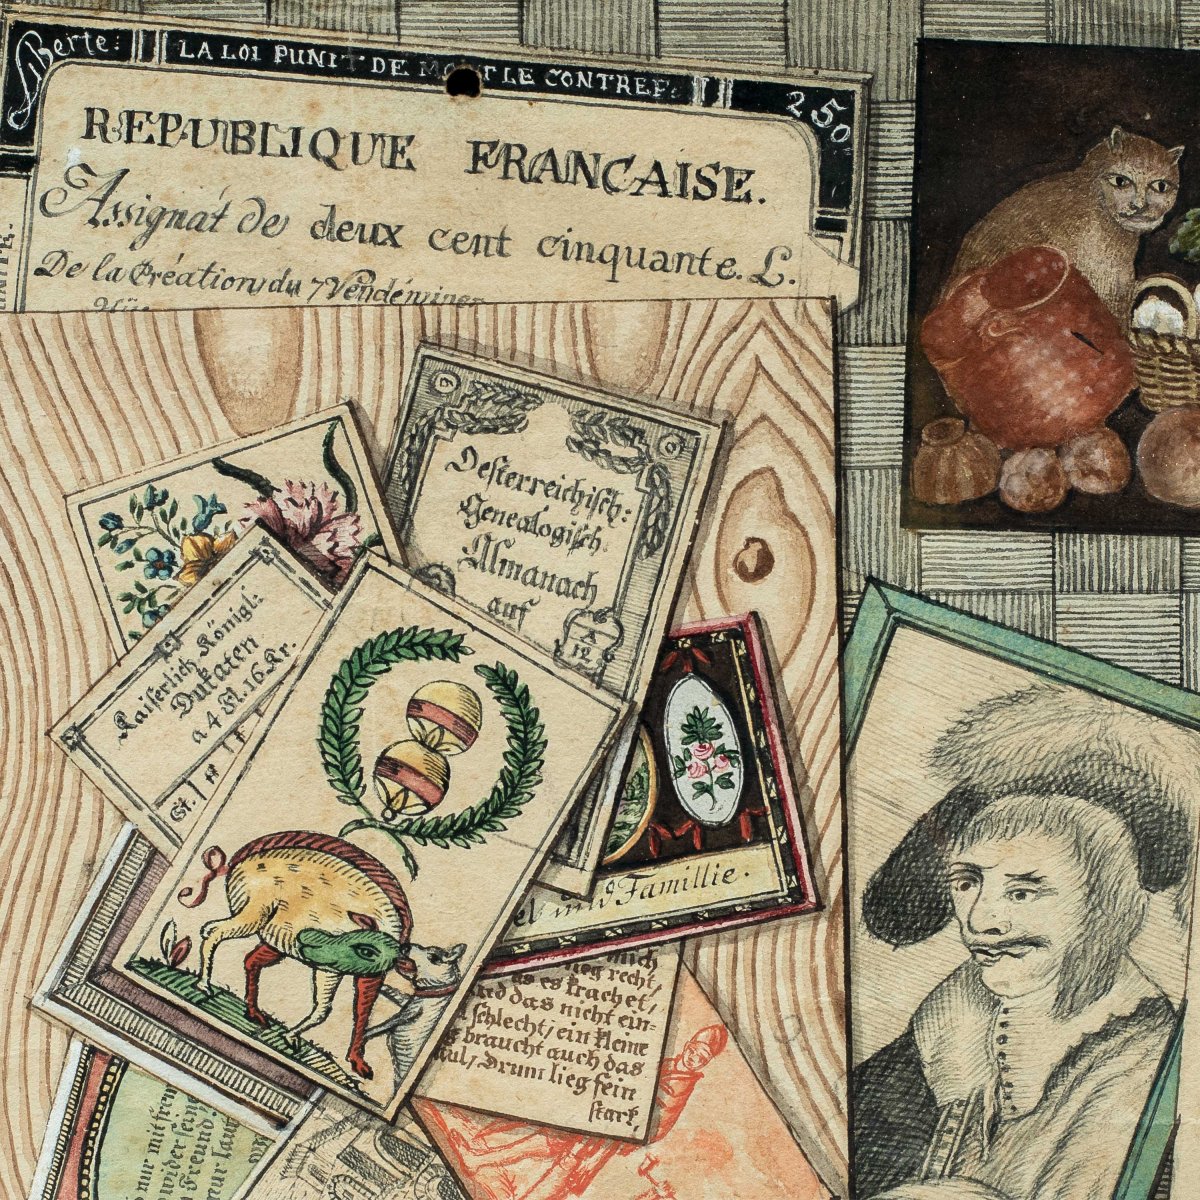 Liberte:
LA LOI PUNIT DE MORT LE CONTREF:
250
REPUBLIQUE FRANÇAISE.
Assignat de deux cent cinquante. L.
De la Création du 7 Vendéminer
Oesterreichisch:
Genealogisch
Almanach
auf
Kaiserlich Königl:
Dukaten
a 4 Fl. 16 Kr.
und Famillie.
mich
recht,
as es krachet,
und das nicht ein=
schlecht, ein kleine
braucht auch das
Drum lieg fein
stark,
nur mit
wider sein
Freund